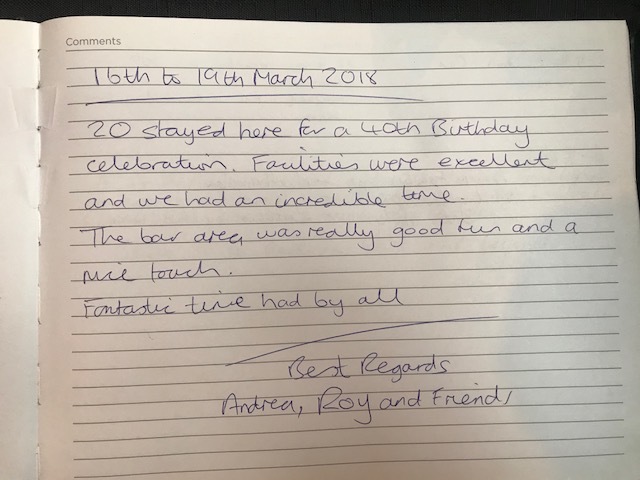 Comments
16th to 19th March 2018
20 stayed here for a 40th Birthday
celebration. Facilities were excellent
and we had an incredible time.
The bar area was really good fun and a
nice touch.
Fantastic time had by all
Best Regards
Andrea, Roy and Friends